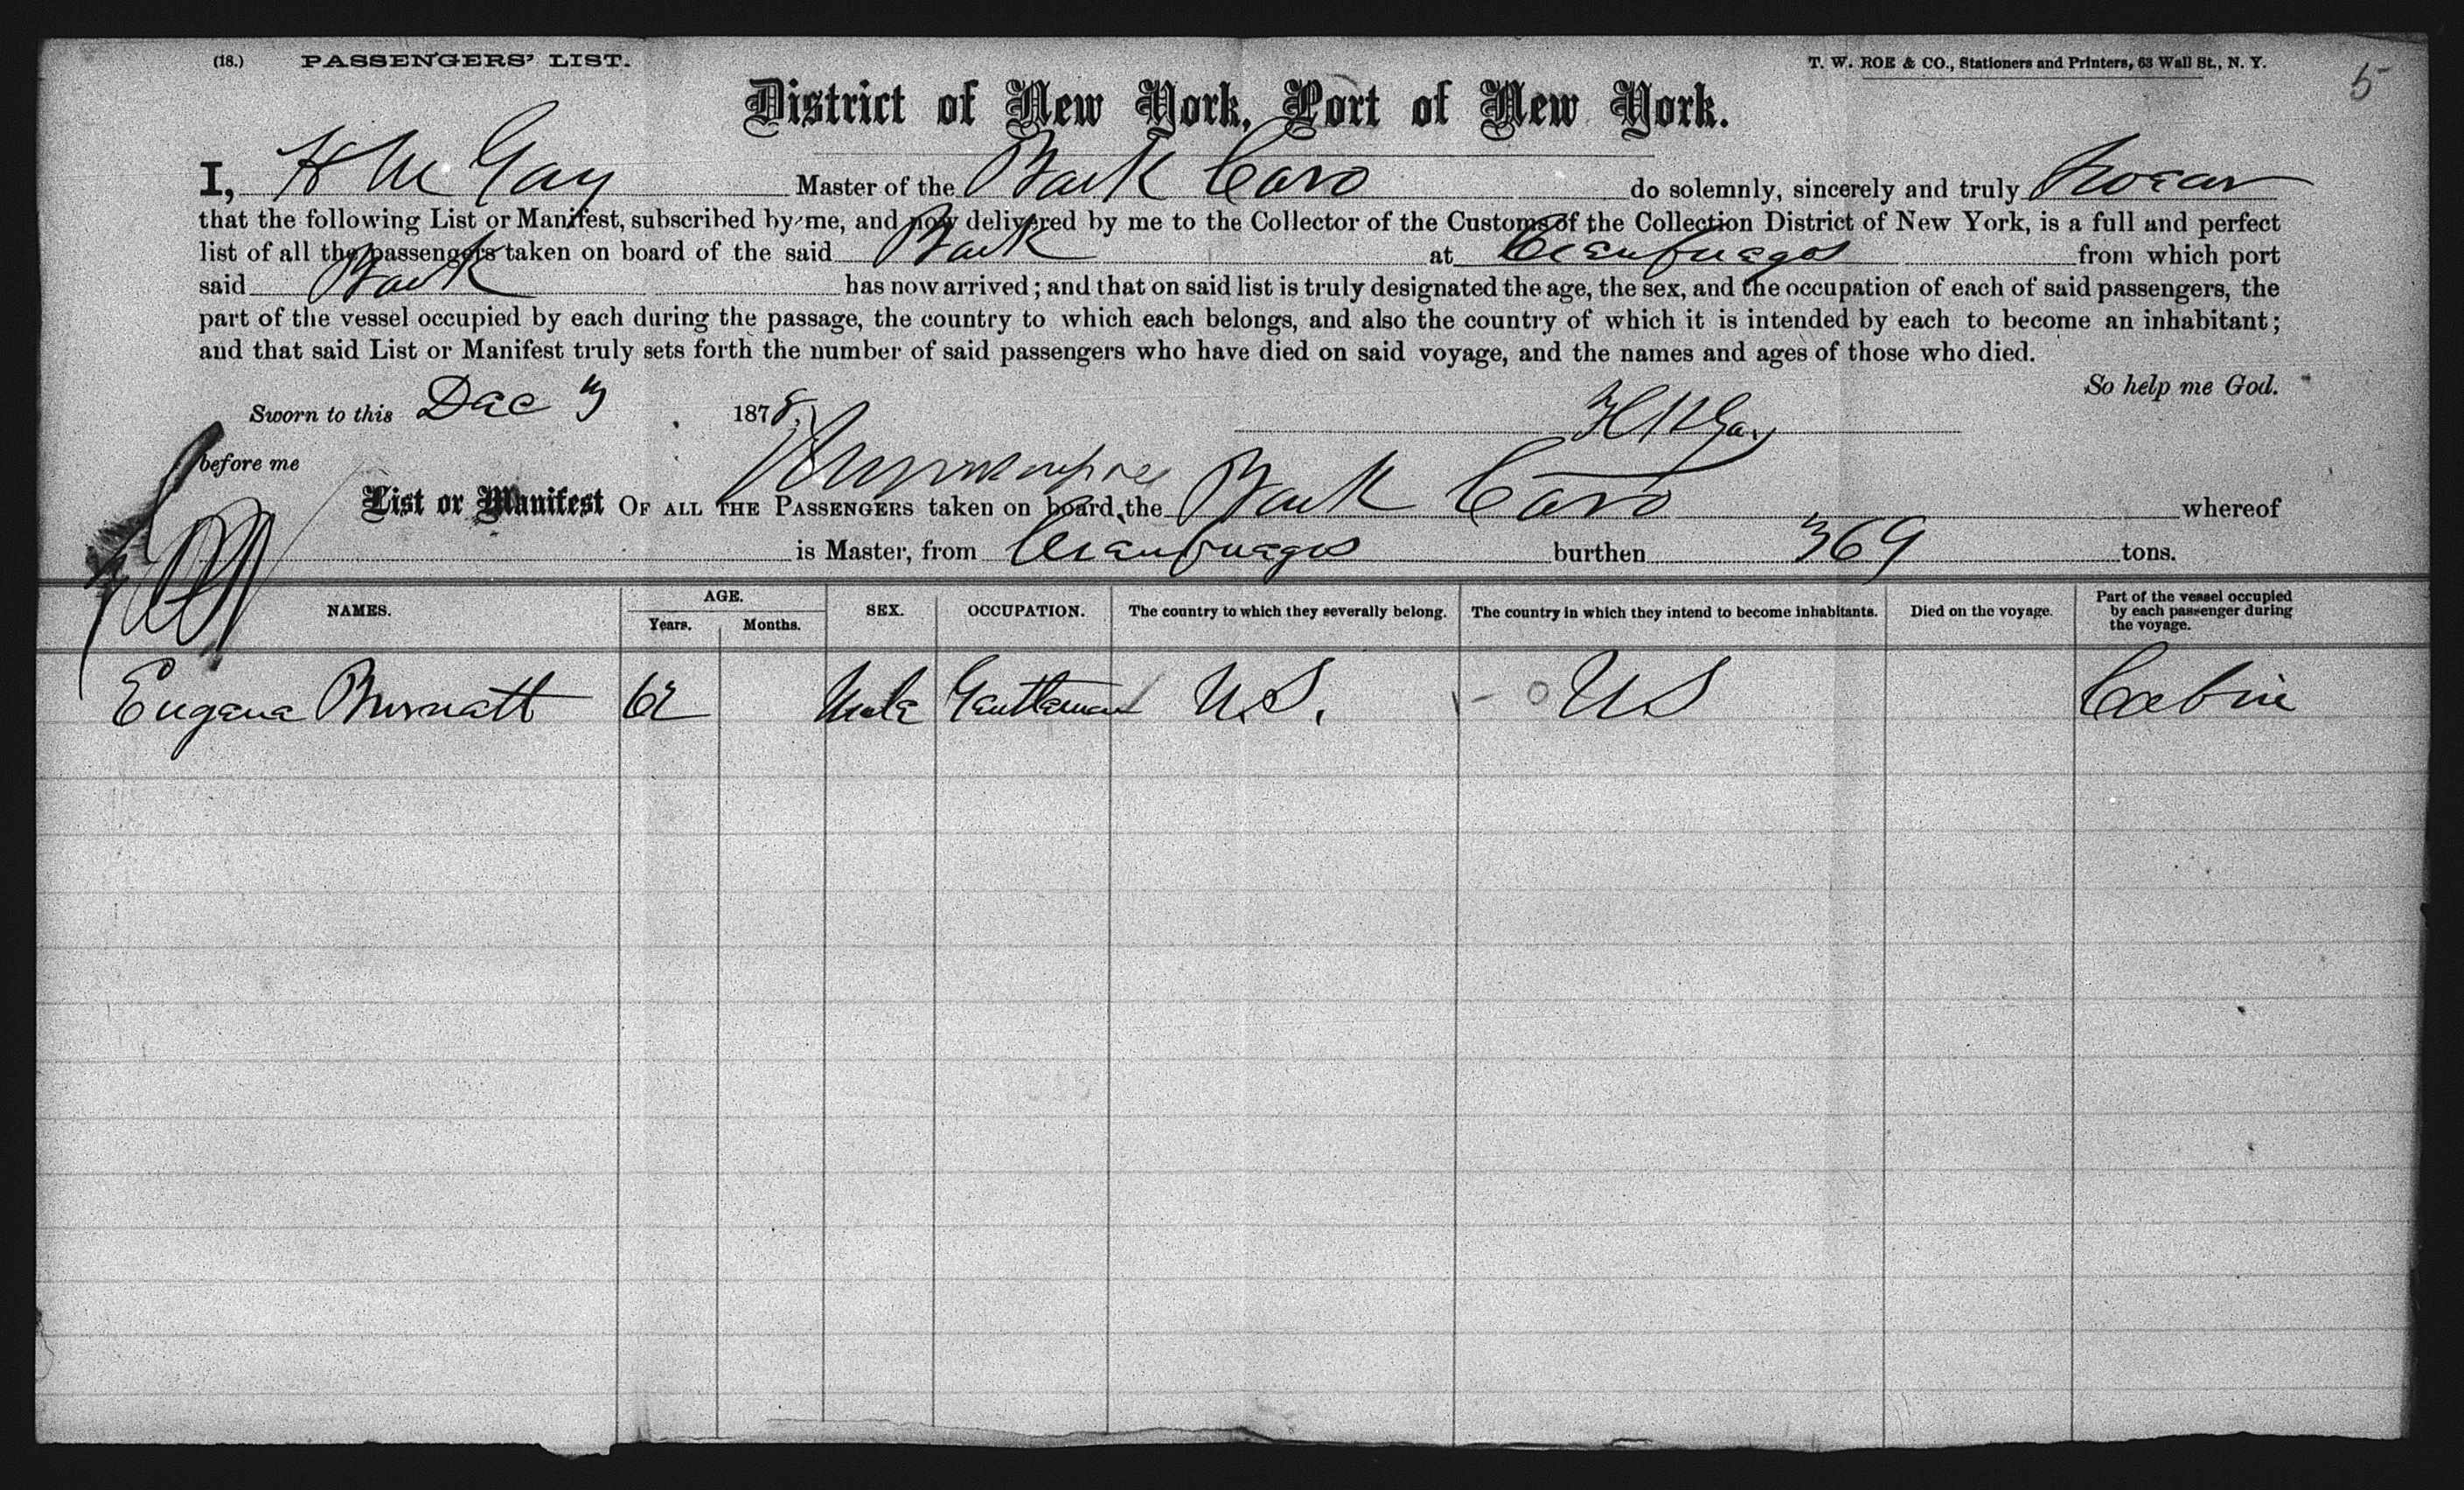 (18.) PASSENGERS' LIST.
T. W. ROE & CO., Stationers and Printers, 63 Wall St., N. Y.
5
District of New York, Port of New York.
I, H M Gay Master of the Bark Caro do solemnly, sincerely and truly swear
that the following List or Manifest, subscribed by me, and now delivered by me to the Collector of the Customs of the Collection District of New York, is a full and perfect
list of all the passengers taken on board of the said Bark at Cienfuegos from which port
said Bark has now arrived; and that on said list is truly designated the age, the sex, and the occupation of each of said passengers, the
part of the vessel occupied by each during the passage, the country to which each belongs, and also the country of which it is intended by each to become an inhabitant;
and that said List or Manifest truly sets forth the number of said passengers who have died on said voyage, and the names and ages of those who died.
So help me God.
Sworn to this Dec 3 1878
H M Gay
before me
List or Manifest OF ALL THE PASSENGERS taken on board the Bark Caro whereof
is Master, from Cienfuegos burthen 369 tons.
NAMES. AGE. Years. Months. SEX. OCCUPATION. The country to which they severally belong. The country in which they intend to become inhabitants. Died on the voyage. Part of the vessel occupied by each passenger during the voyage.
Eugene Burnett 62 Male Gentleman U.S. US Cabin